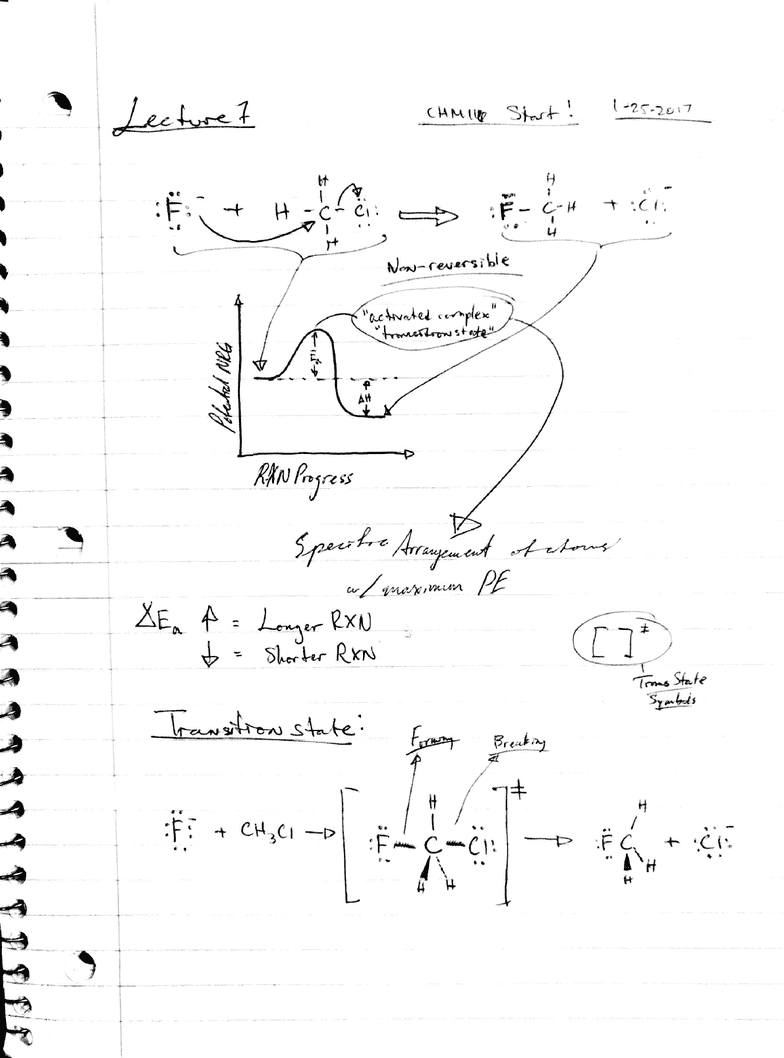 Lecture 7
CHM116 Start! 1-25-2017
H H
:F:⁻ + H - C - Cl: ⟹ F - C - H + :Cl:⁻
H H
Non-reversible
"activated complex"
"transition state"
Ea
ΔH
Potential NRG
RXN Progress
Specific Arrangement of atoms
w/ maximum PE
ΔEa ↑ = Longer RXN
↓ = Shorter RXN
[ ]‡
Trans State
Symbols
Transition state:
Forming Breaking
H H
:F:⁻ + CH3Cl → [:F - C - Cl:]‡ → :F C + :Cl:⁻
H H H H